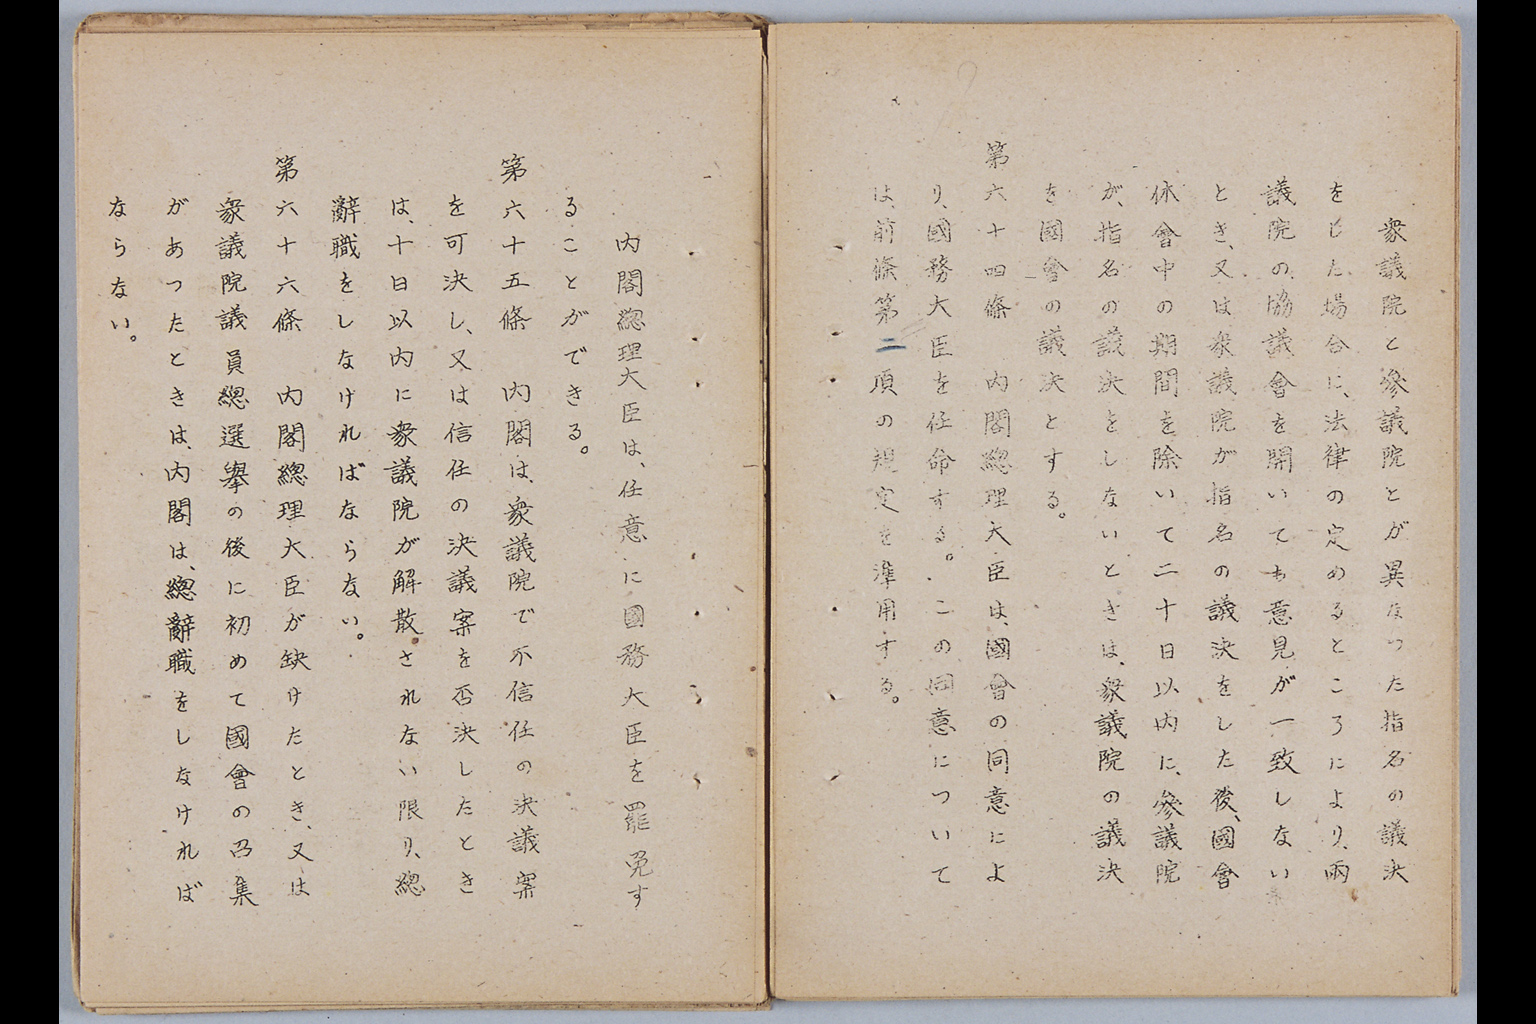 衆議院と參議院とが異なつた指名の議決
をした場合に、法律の定めるところにより、兩
議院の協議會を開いても意見が一致しない
とき、又は衆議院が指名の議決をした後、國會
休會中の期間を除いて二十日以内に、參議院
が、指名の議決をしないときは、衆議院の議決
を國會の議決とする。
第六十四條　内閣總理大臣は、國會の同意によ
り、國務大臣を任命する。この同意について
は、前條第二項の規定を準用する。
内閣總理大臣は、任意に國務大臣を罷免す
ることができる。
第六十五條　内閣は、衆議院で不信任の決議案
を可決し、又は信任の決議案を否決したとき
は、十日以内に衆議院が解散されない限り、總
辭職をしなければならない。
第六十六條　内閣總理大臣が缺けたとき、又は
衆議院議員總選擧の後に初めて國會の召集
があつたときは、内閣は、總辭職をしなければ
ならない。